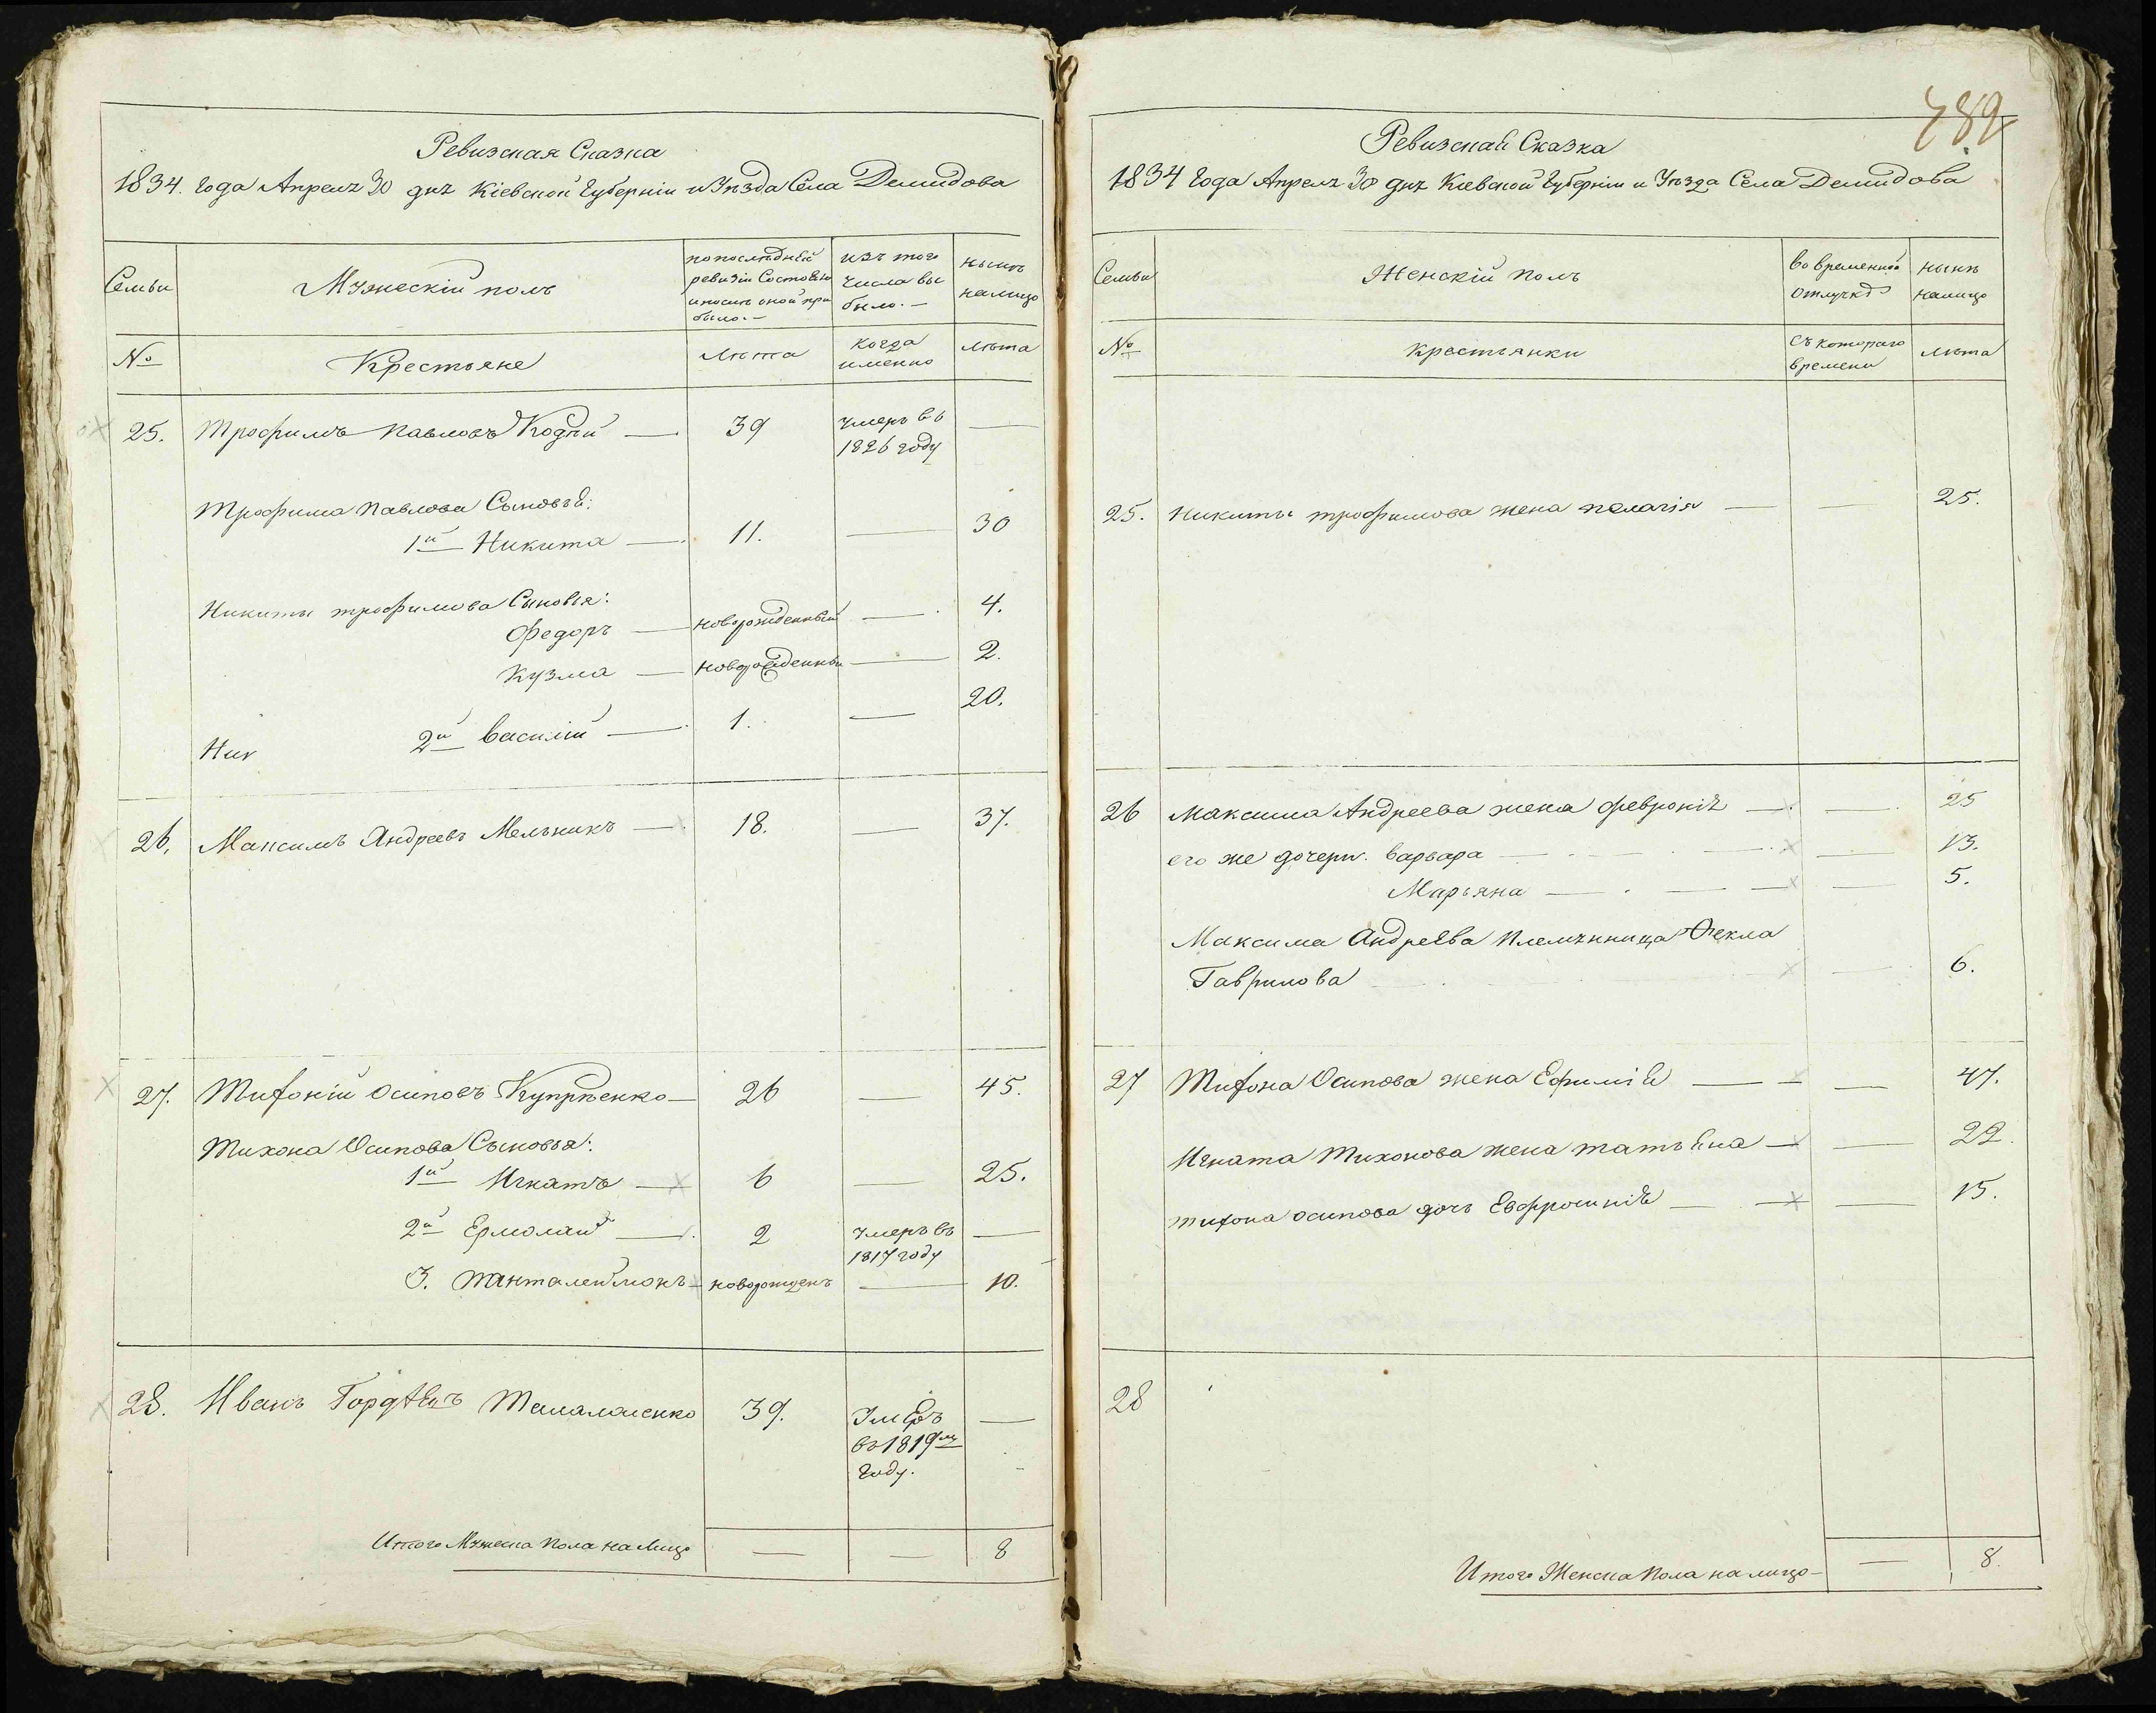 Ревизская Сказка
1834. года Апреля 30 дня Кіевской Губерніи и Уезда Села Демидова
Семьи
Мужескій полъ
по последней
ревизіи Состояло
и после оной при
было.—
изъ того
числа вы
было.—
ныне
налицо
№
Крестьяне
лета
когда
именно
лета
25. Трофимъ Павловъ Кодий — 39 умеръ въ —
1826 году
Трофима Павлова Сыновья:
1й Никита — 11. — 30
Никиты трофимова Сыновья:
Федоръ — новорожденный — 4.
Кузма — новорожденны — 2.
20.
Ник 2й василій — 1. —
26. Максимъ Андреевъ Мельникъ — 18. — 37.
27. Тихоній Осиповъ Купріенко — 26 — 45.
Тихона Осипова Сыновья:
1й Игнатъ — 6 — 25.
2й Ермолай — 2 умеръ въ —
1817 году
3. Панталеймонъ — новорожденъ — 10.
28. Иванъ Гордѣевъ Талалаенко 39. Умеръ —
въ 1819му
году.
Итого Мужеска Пола на Лицо — — 8
789
Ревизская Сказка
1834 года Апреля 30 дня Кіевской Губерніи и Уезда Села Демидова
Семьи
Женскій полъ
во временной
отлучке
ныне
налицо
№
крестьянки
съ котораго
времени
лета
25. Никиты трофимова жена пелагія — — 25.
26 Максима Андреева жена февронія — — 25
его же дочери. варвара — — 13.
Марьяна — — 5.
Максима Андреева племянница Фекла
Гаврилова — — 6.
27 Тихона Осипова жена Ефимія — — 47.
Игната Тихонова жена татьяна — — 22.
тихона осипова дочь Евфросинія — — 15.
28
Итого Женска Пола на лицо — — 8.